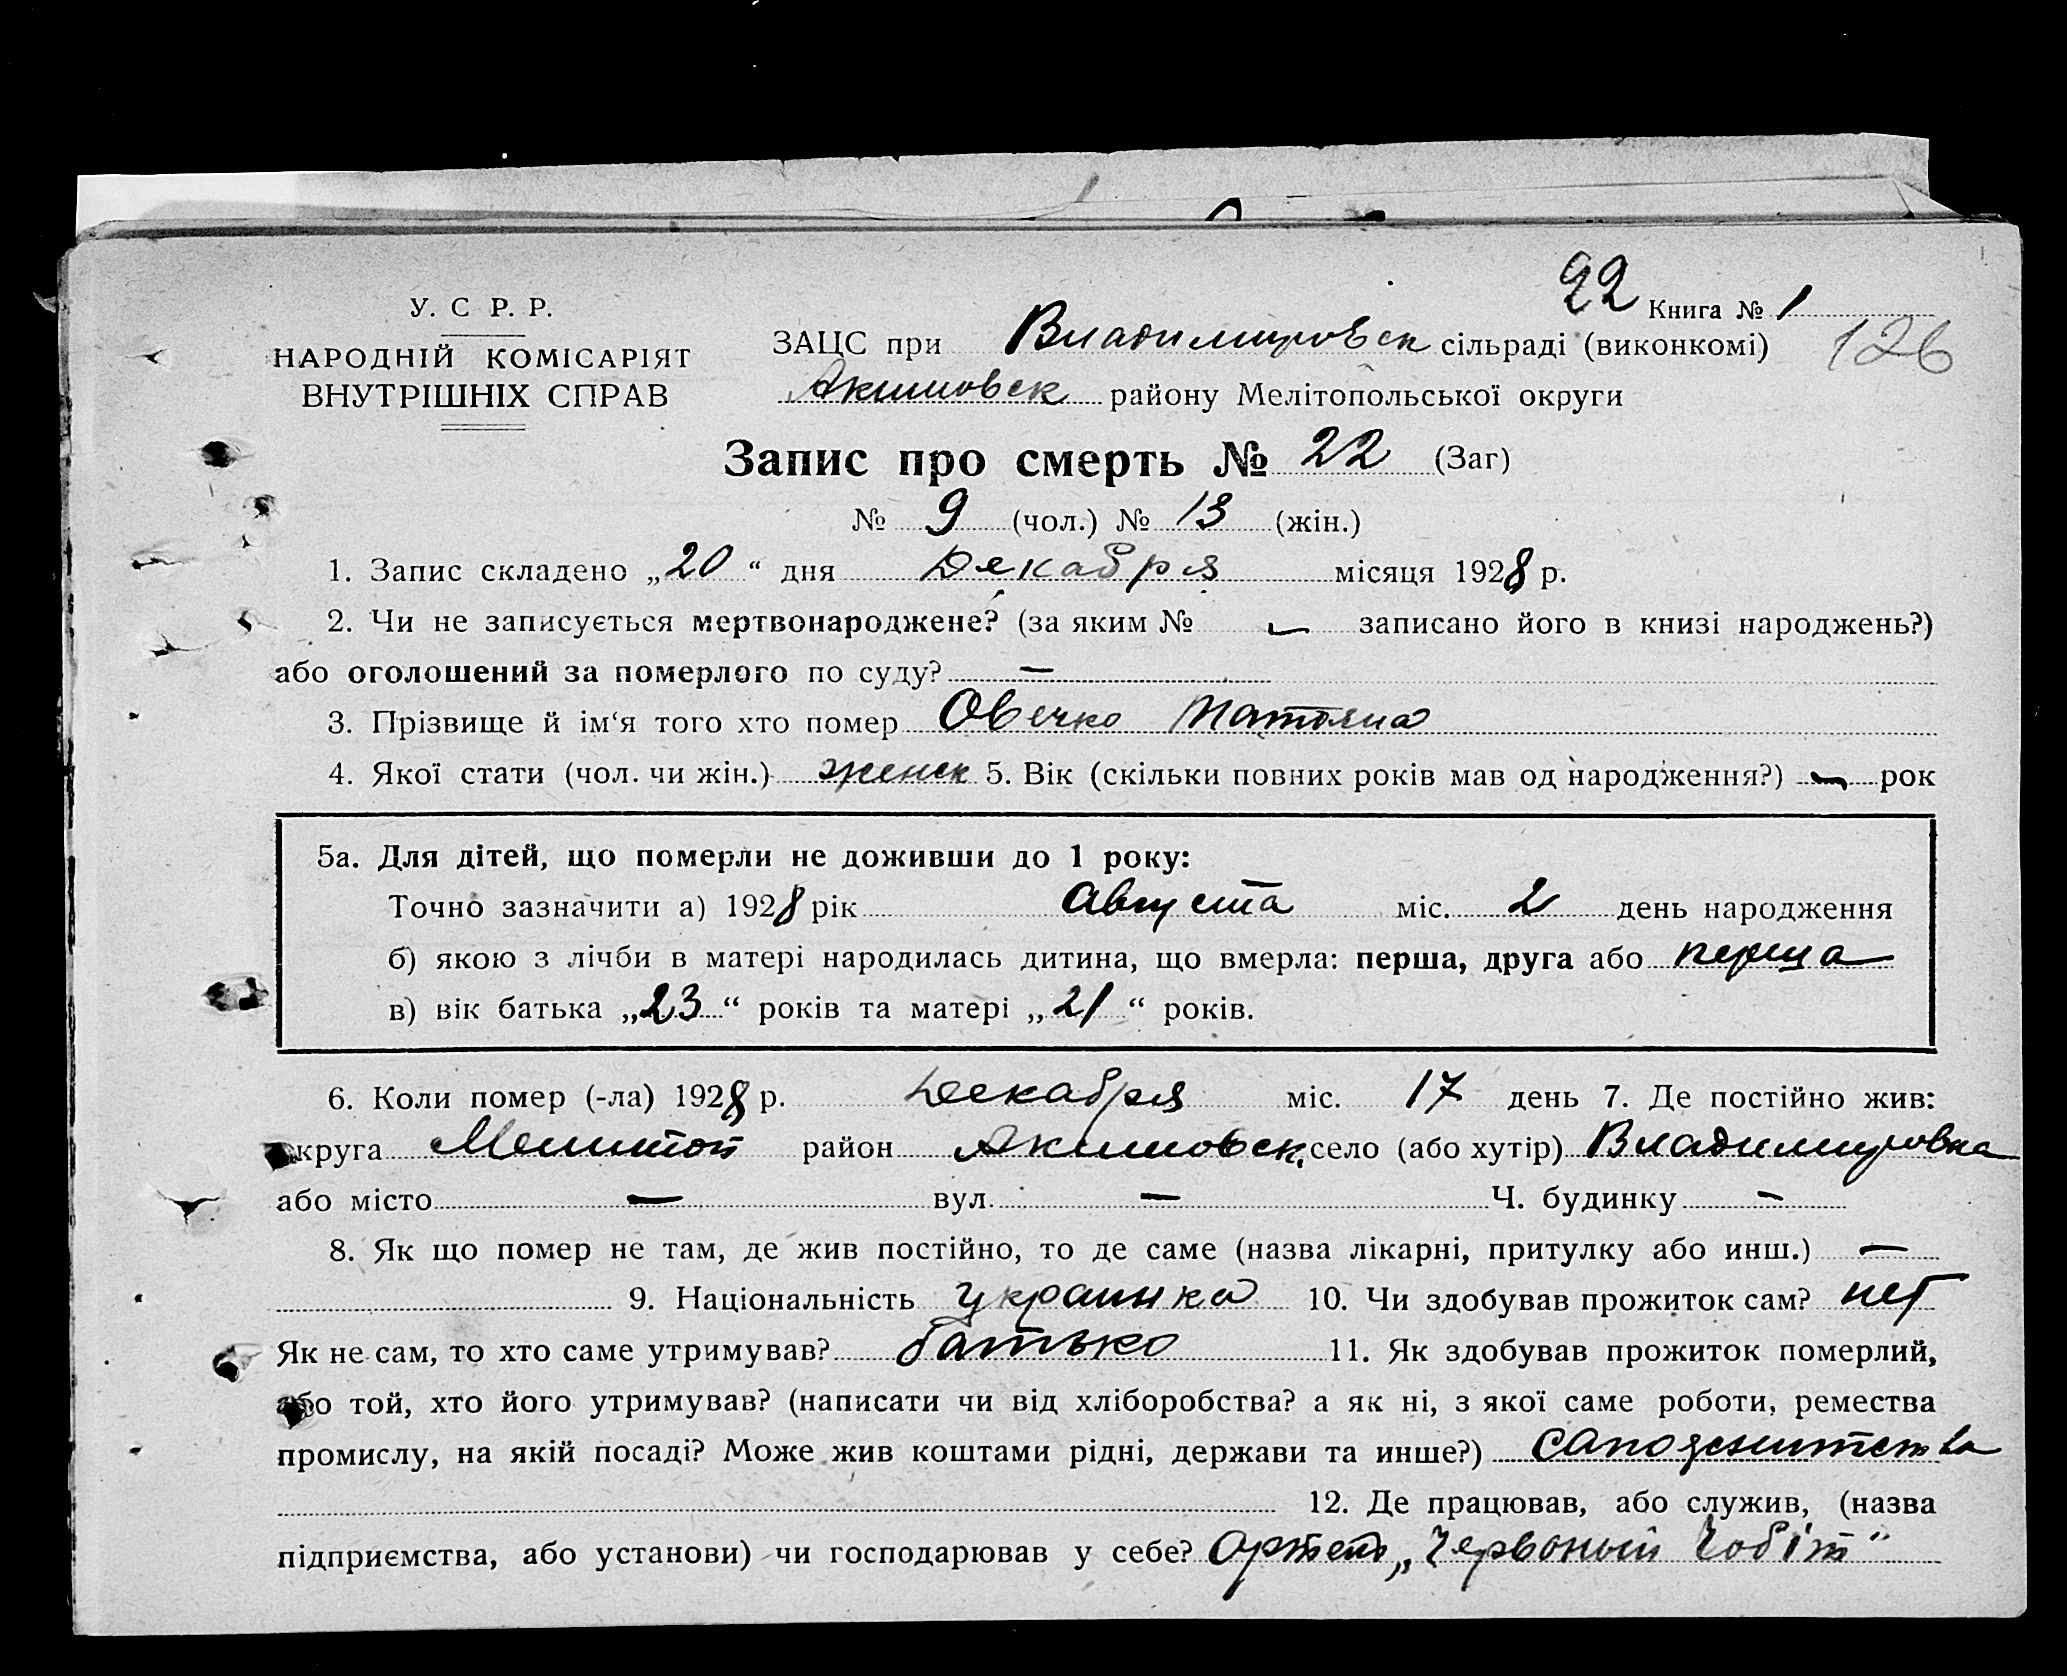 22 Книга № 1
У. С Р. Р.
ЗАЦС при Владимировск сільраді (виконкомі) 126
НАРОДНІЙ КОМІСАРІЯТ
ВНУТРІШНІХ СПРАВ
Акимовск району Мелітопольської округи
Запис про смерть № 22 (Заг)
№ 9 (чол.) № 13 (жін.)
1. Запис складено „20“ дня Декабря місяця 1928 р.
2. Чи не записується мертвонароджене? (за яким № — записано його в книзі народжень?)
або оголошений за померлого по суду? —
3. Прізвище й ім‘я того хто помер Овечко Татьяна
4. Якої стати (чол. чи жін.) женск 5. Вік (скільки повних років мав од народження?) — рок
5а. Для дітей, що померли не доживши до 1 року:
Точно зазначити а) 1928 рік Августа міс. 2 день народження
б) якою з лічби в матері народилась дитина, що вмерла: перша, друга або перша
в) вік батька „23“ років та матері „21“ років.
6. Коли помер (-ла) 1928 р. Декабря міс. 17 день 7. Де постійно жив:
округа Мелитоп район Акимовск село (або хутір) Владимировка
або місто — вул. — Ч. будинку —
8. Як що помер не там, де жив постійно, то де саме (назва лікарні, притулку або инш.) —
9. Національність украинка 10. Чи здобував прожиток сам? нет
Як не сам, то хто саме утримував? батько 11. Як здобував прожиток померлий,
або той, хто його утримував? (написати чи від хліборобства? а як ні, з якої саме роботи, ремества
промислу, на якій посаді? Може жив коштами рідні, держави та инше?)
12. Де працював, або служив, (назва
підприємства, або установи) чи господарював у себе? Артель „Червоный Чобіт“